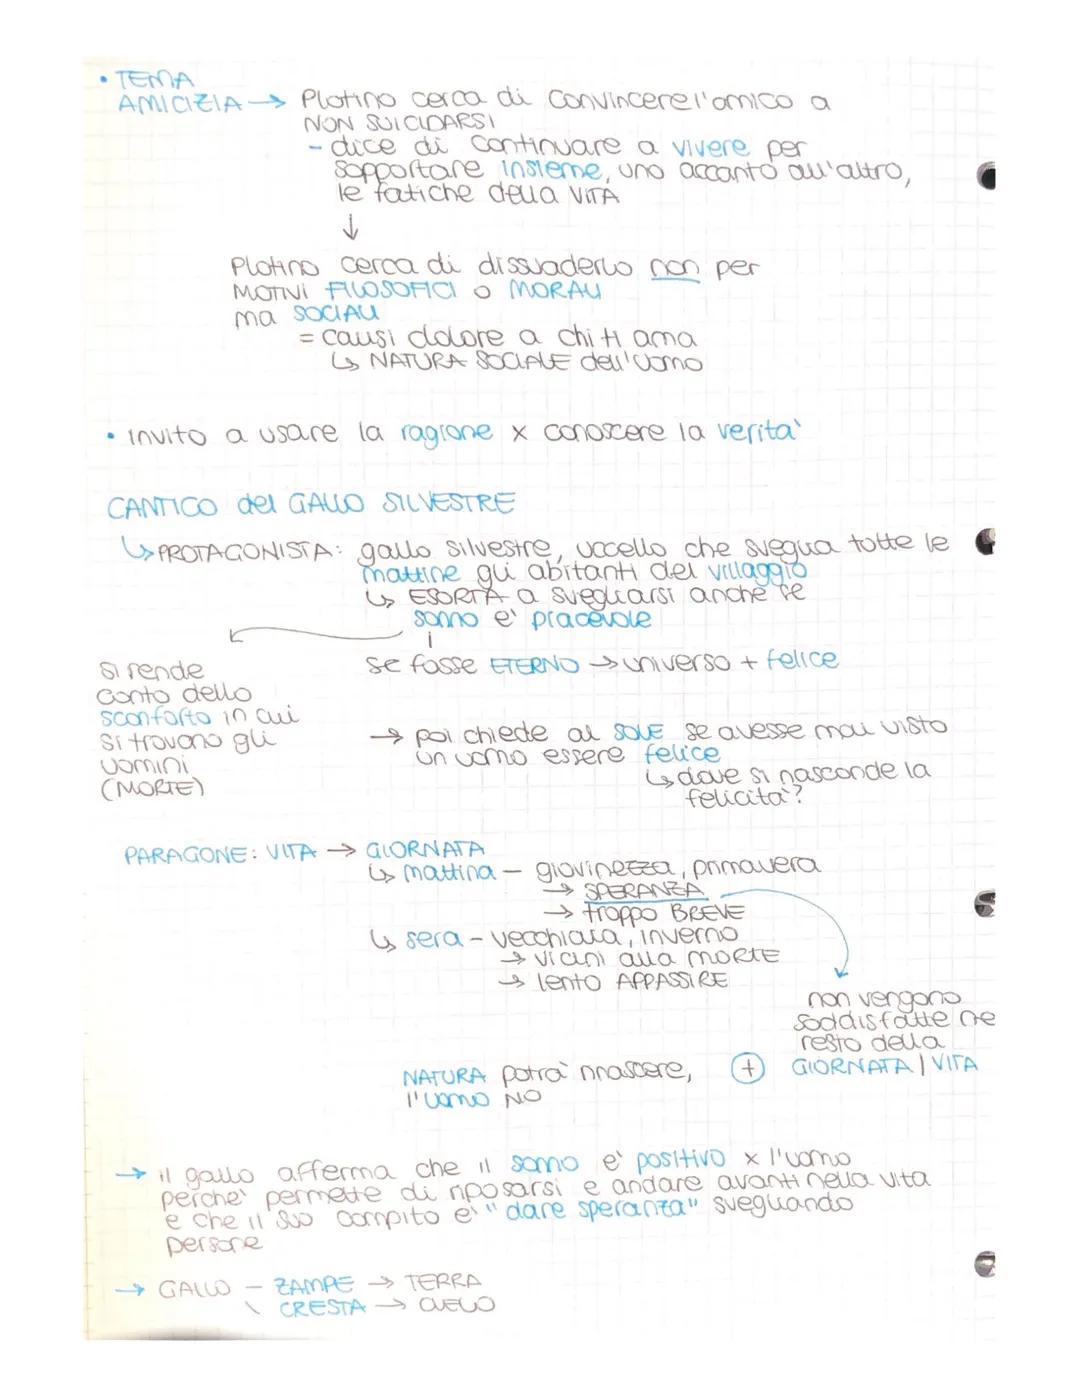 • TEMA
AMICIZIA → Plotino cerca di convincere l'amico a
NON SUICIDARSI
- dice di continuare a vivere per
sopportare insieme, uno accanto all'altro,
le fatiche della VITA
↓
Plotino cerca di dissuaderlo non per
MOTIVI FILOSOFICI o MORALI
ma SOCIALI
= causi dolore a chi ti ama
↳ NATURA SOCIALE dell'uomo
• invito a usare la ragione x conoscere la verita'
CANTICO del GALLO SILVESTRE
↳ PROTAGONISTA: gallo silvestre, uccello che sveglia tutte le
mattine gli abitanti del villaggio
↳ ESORTA a svegliarsi anche se
sonno e' piacevole
se fosse ETERNO → universo + felice
si rende
conto dello
sconforto in cui
si trovano gli
uomini
(MORTE)
→ poi chiede al SOLE se avesse mai visto
un uomo essere felice
↳ dove si nasconde la
felicita'?
PARAGONE: VITA → GIORNATA
↳ mattina - giovinezza, primavera
→ SPERANZA
→ troppo BREVE
↳ sera - vecchiaia, inverno
→ vicini alla MORTE
→ lento APPASSIRE
non vengono
soddisfatte ne
resto della
GIORNATA | VITA
NATURA potra' rinascere, +
l'uomo NO
→ il gallo afferma che il sonno e' positivo x l'uomo
perche' permette di riposarsi e andare avanti nella vita
e che il suo compito e' "dare speranza" svegliando
persone
→ GALLO - ZAMPE → TERRA
\ CRESTA → CIELO